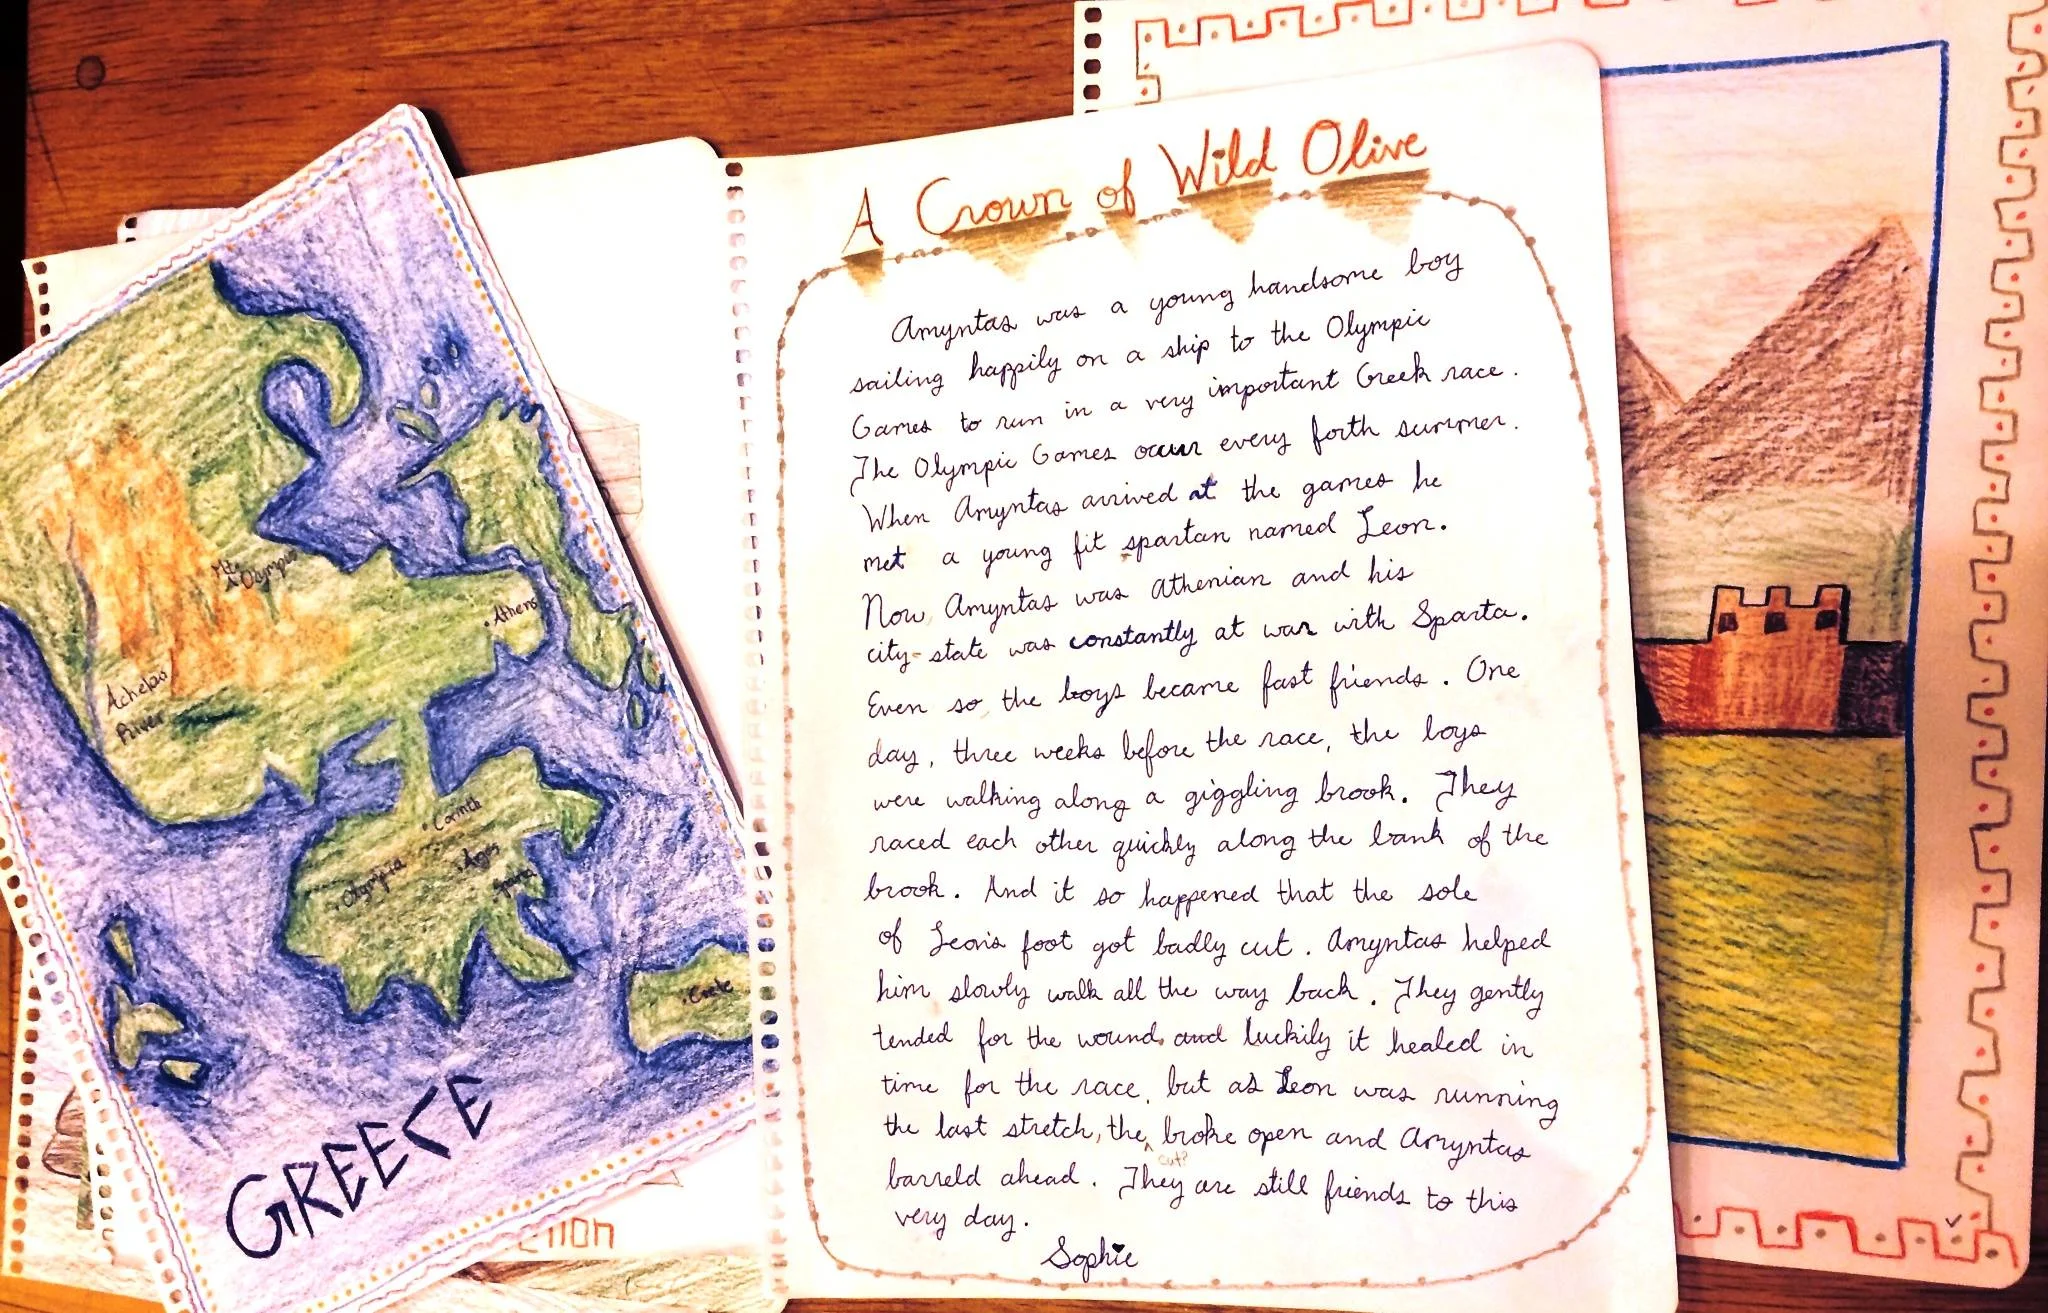 A Crown of Wild Olive
Amyntas was a young handsome boy
sailing happily on a ship to the Olympic
Games to run in a very important Greek race.
The Olympic Games occur every forth summer.
When Amyntas arrived at the games he
met a young fit spartan named Leon.
Now Amyntas was Athenian and his
city-state was constantly at war with Sparta.
Even so the boys became fast friends. One
day, three weeks before the race, the boys
were walking along a giggling brook. They
raced each other quickly along the bank of the
brook. And it so happened that the sole
of Leon's foot got badly cut. Amyntas helped
him slowly walk all the way back. They gently
tended for the wound, and luckily it healed in
time for the race, but as Leon was running
the last stretch, the broke open and Amyntas
cut?
barreld ahead. They are still friends to this
very day.
Sophie
Mt. Olympus
Athens
Achelous
River
Corinth
Olympia
Argos
Sparta
Crete
GREECE